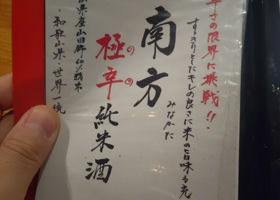 辛口の限界に挑戦!!
すっきりとしたキレの良さに米の旨味も充
南方
みなかた
極辛純米酒
の
県産山田錦60%精米
和歌山県・世界一統